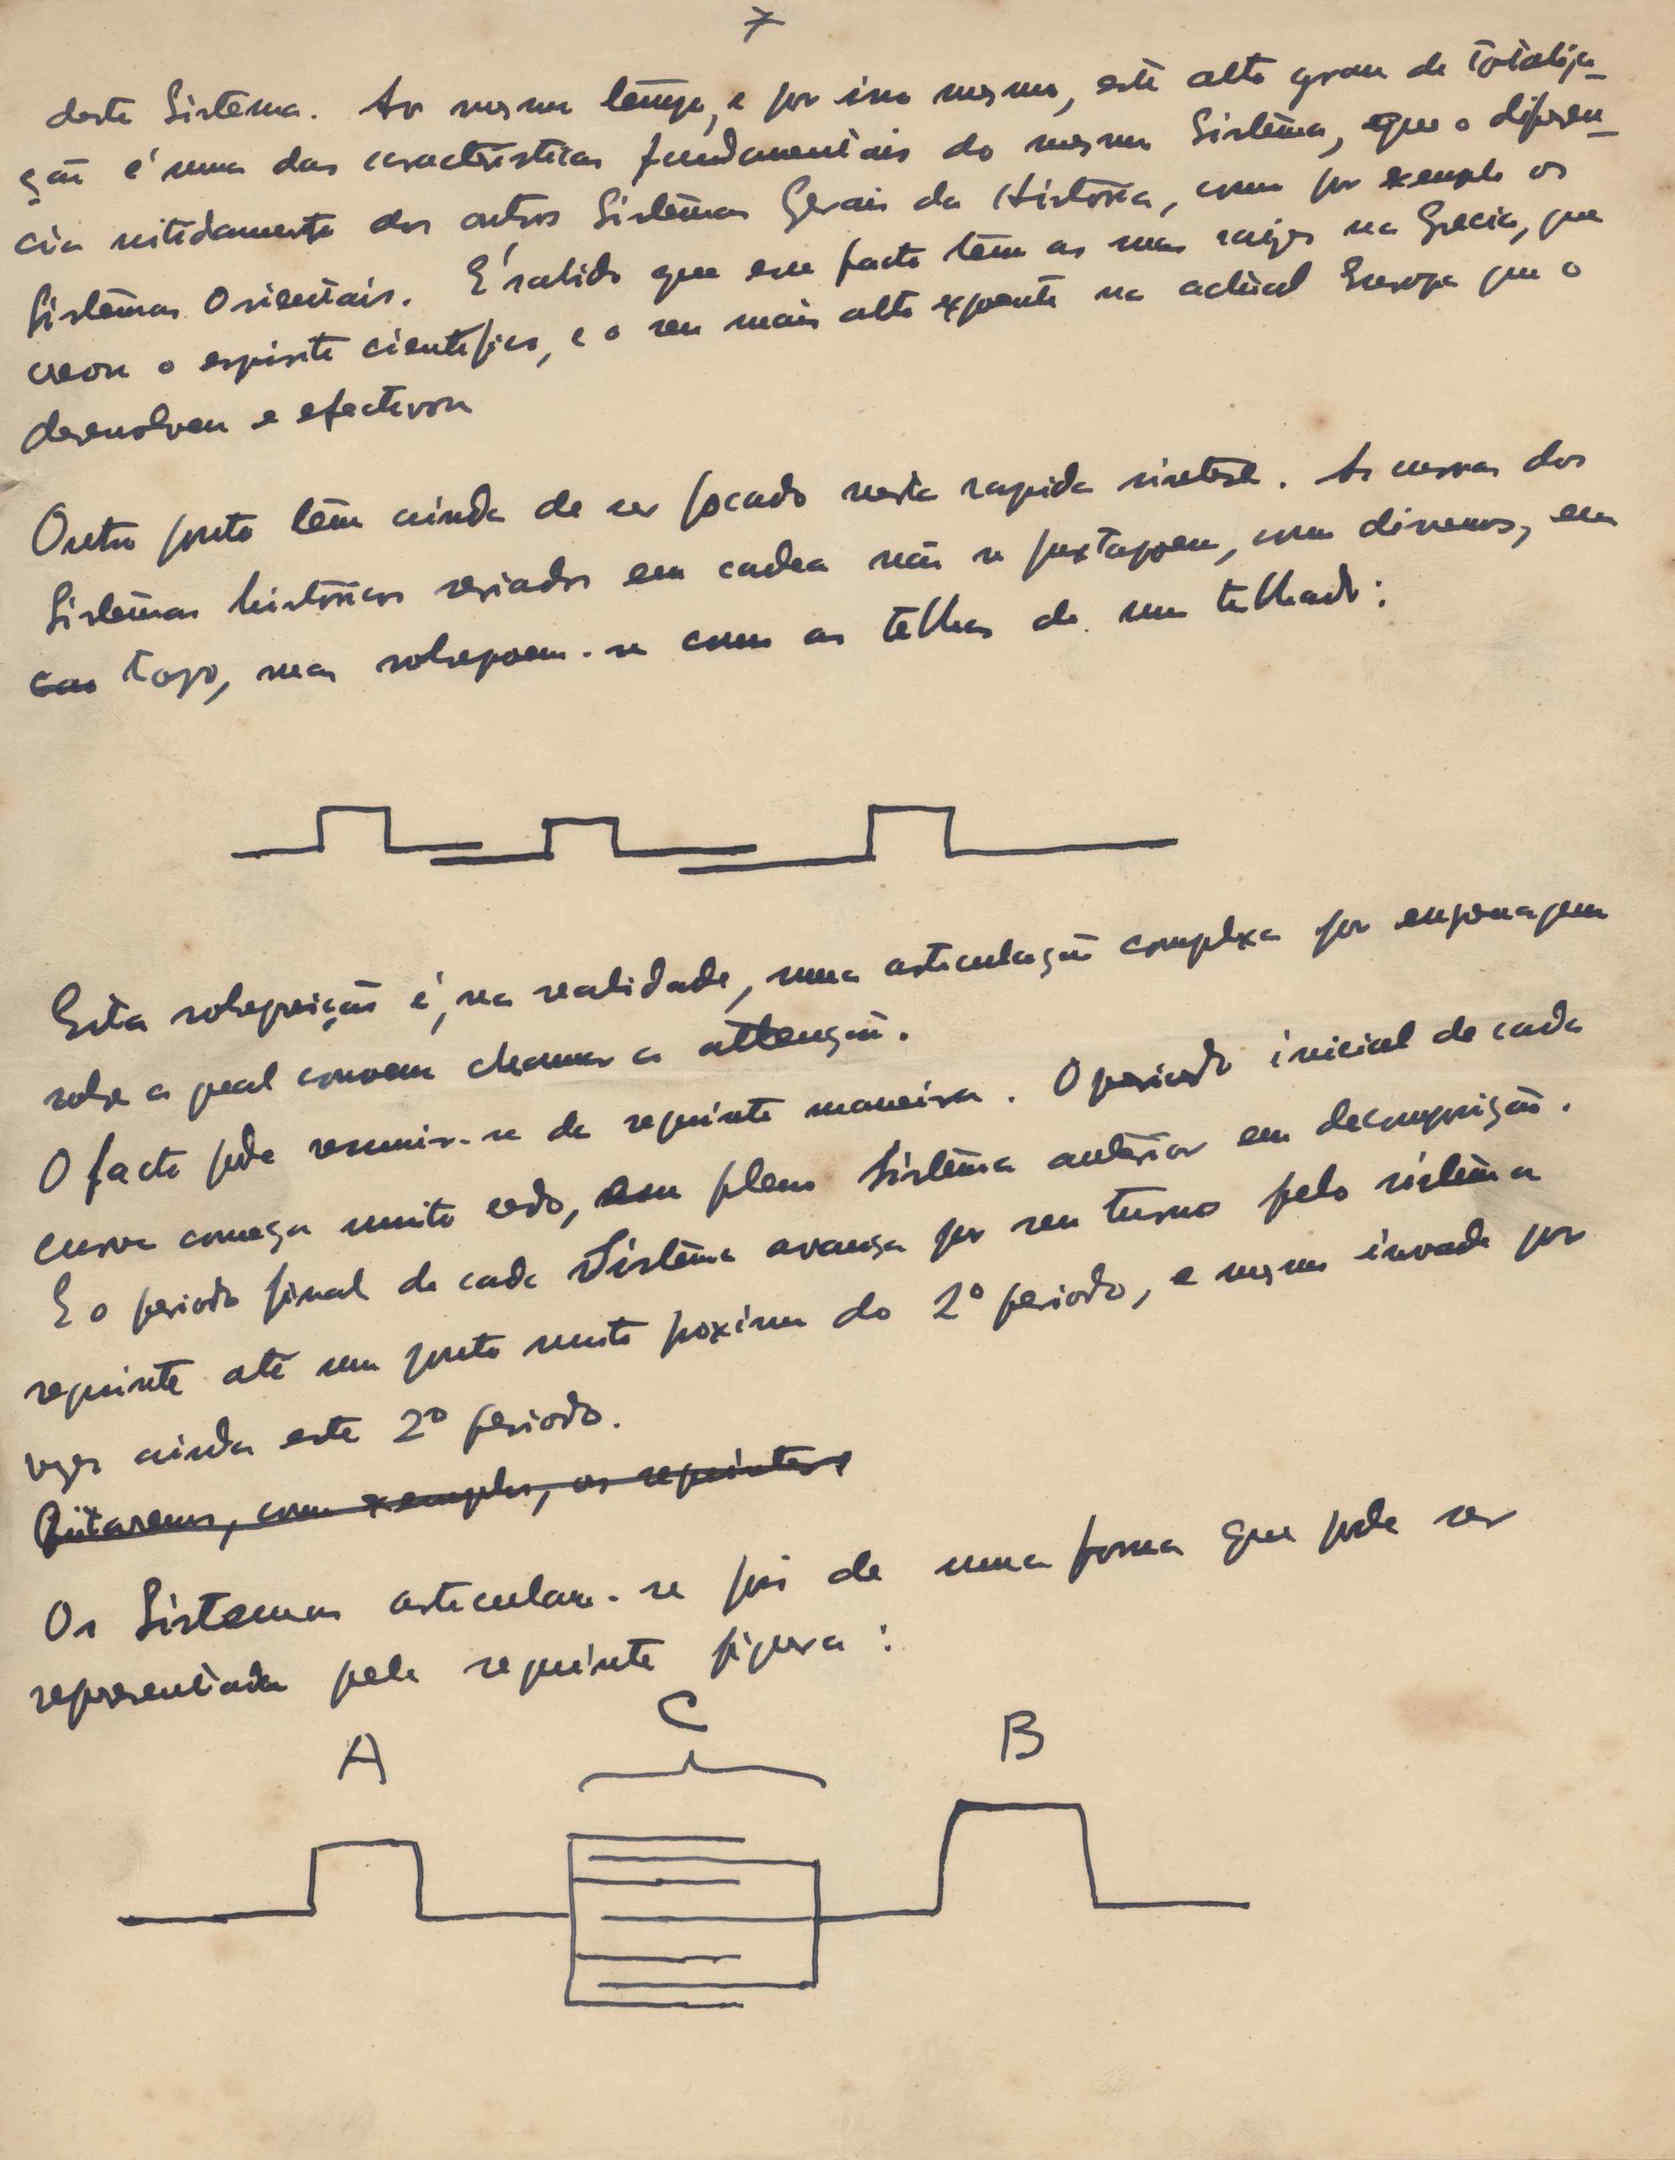 7
deste Sistema. Ao mesmo tempo, e por isso mesmo, este alto grau de totaliza-
ção é uma das caracteristicas fundamentais do mesmo Sistema, que o diferen-
cia nitidamente dos outros Sistemas Gerais da Historia, como por exemplo os
Sistemas Orientais. É sabido que esse facto tem as suas raizes na Grecia, que
creou o espirito cientifico, e o seu mais alto expoente na actual Europa que o
desenvolveu e efectivou
Outro ponto tem ainda de ser focado nesta rapida sintese. As curvas dos
Sistemas historicos seriados em cadea não se juxtapoem, como dissemos, em
topo, mas sobrepoem-se como as telhas de um telhado:
Esta sobreposição é, na realidade, uma articulação complexa por engrenagem
sobre a qual convem chamar a attenção.
O facto pode resumir-se da seguinte maneira. O periodo inicial de cada
curva começa muito cedo, em pleno Sistema anterior em decomposição.
E o periodo final de cada Sistema avança por seu turno pelo sistema
seguinte até um ponto muito proximo do 2º periodo, e mesmo invade por
vezes ainda este 2º periodo.
Citaremos, como exemplos, os seguintes
Os Sistemas articulam-se pois de uma forma que pode ser
representada pela seguinte figura:
A C B